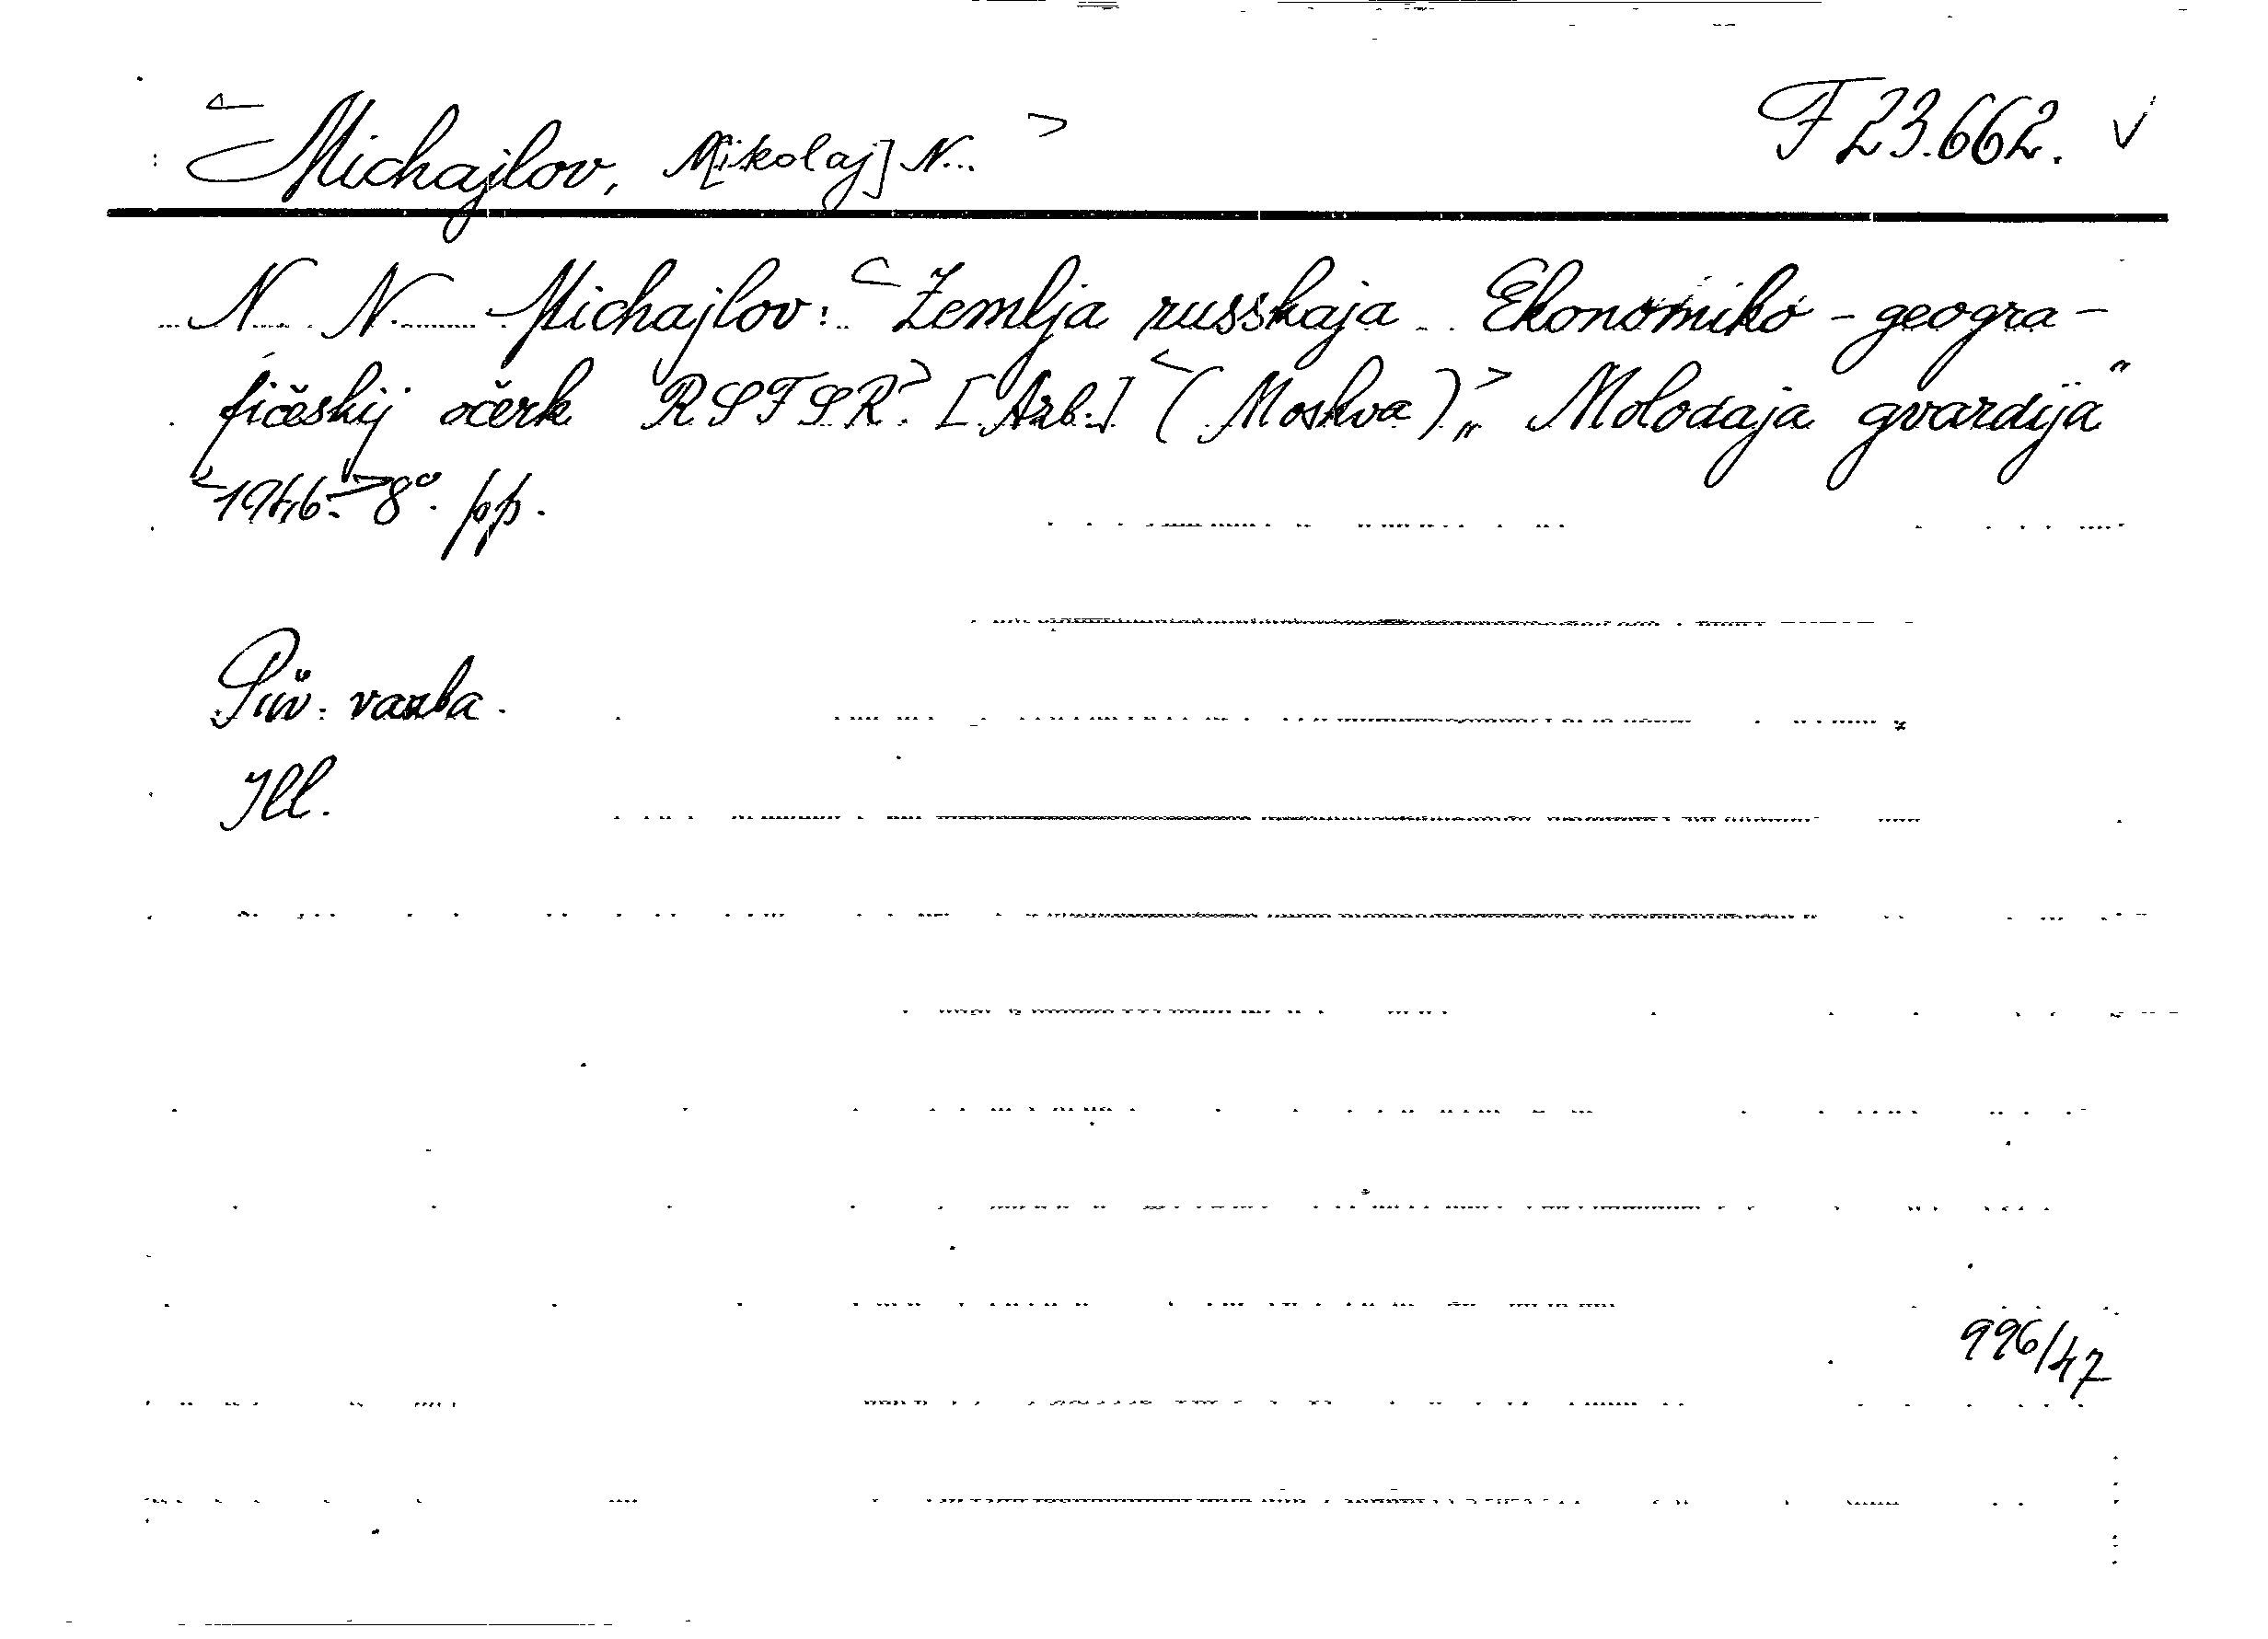 Michajlov, N[ikolaj] N... F 23.662.
N. N. Michajlov: Zemlja russkaja. Ekonomiko-geogra-
fičeskij očerk RSFSR. [Azb.] (Moskva) „Molodaja gvardija“
1946. 8°. pp.
Pův. vazba.
Ill.
996/47